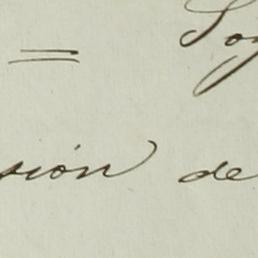 = Soy
sión de